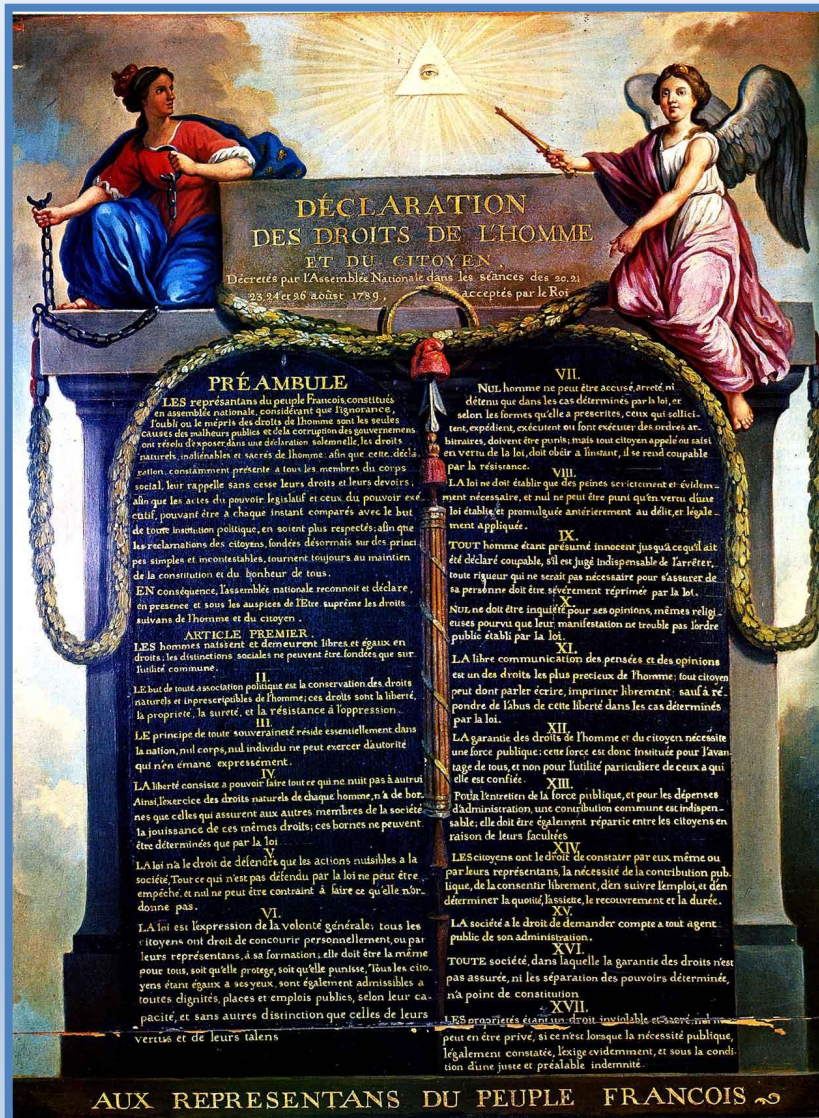 DÉCLARATION
DES DROITS DE L'HOMME
ET DU CITOYEN,
Décretés par l'Assemblée Nationale dans les séances des 20, 21
23, 24 et 26 aoûst 1789, acceptés par le Roi
PRÉAMBULE
LES représantans du peuple Francois, constitués
en assemblée nationale, considérant que l'ignorance,
l'oubli ou le mépris des droits de l'homme sont les seules
causes des malheurs publics et de la corruption des gouvernemens
ont résolu d'exposer dans une déclaration solemnelle, les droits
naturels, inaliénables et sacrés de l'homme: afin que cette décla
ration, constamment présente a tous les membres du corps
social, leur rappelle sans cesse leurs droits et leurs devoirs,
afin que les actes du pouvoir législatif et ceux du pouvoir exé
cutif, pouvant être a chaque instant comparés avec le but
de toute institution politique, en soient plus respectés; afin que
les reclamations des citoyens, fondées désormais sur des princi
pes simples et incontestables, tournent toujours au maintien
de la constitution et du bonheur de tous.
EN conséquence, l'assemblée nationale reconnoit et déclare,
en presence et sous les auspices de l'Etre suprême les droits
suivans de l'homme et du citoyen.
ARTICLE PREMIER.
LES hommes naissent et demeurent libres et égaux en
droits; les distinctions sociales ne peuvent être fondées que sur
l'utilité commune.
II.
LE but de toute association politique est la conservation des droits
naturels et inprescriptibles de l'homme; ces droits sont la liberté,
la propriété, la sureté, et la résistance à l'oppression.
III.
LE principe de toute souveraineté réside essentiellement dans
la nation, nul corps, nul individu ne peut exercer d'autorité
qui n'en émane expressément.
IV.
LA liberté consiste a pouvoir faire tout ce qui ne nuit pas à autrui
Ainsi, l'exercice des droits naturels de chaque homme, n'a de bor_
nes que celles qui assurent aux autres membres de la société
la jouissance de ces mêmes droits; ces bornes ne peuvent
être déterminées que par la loi
V.
LA loi n'a le droit de défendre que les actions nuisibles a la
société. Tout ce qui n'est pas défendu par la loi ne peut être
empêché, et nul ne peut être contraint à faire ce qu'elle n'or_
donne pas.
VI.
LA loi est l'expression de la volonté générale; tous les
citoyens ont droit de concourir personnellement, ou par
leurs représentans, à sa formation; elle doit être la même
pour tous, soit qu'elle protege, soit qu'elle punisse, Tous les cito_
yens étant égaux a ses yeux, sont également admissibles a
toutes dignités, places et emplois publics, selon leur ca_
pacité, et sans autres distinction que celles de leurs
vertus et de leurs talens
VII.
NUL homme ne peut être accusé, arreté, ni
détenu que dans les cas déterminés par la loi, et
selon les formes qu'elle a prescrites, ceux qui sollici_
tent, expédient, exécutent ou font exécuter des ordres ar_
bitraires, doivent être punis; mais tout citoyen appelé ou saisi
en vertu de la loi, doit obéir a l'instant, il se rend coupable
par la résistance.
VIII.
LA loi ne doit établir que des peines strictement et évidem_
ment nécessaire, et nul ne peut être puni qu'en vertu d'une
loi établie et promulguée antérierement au délit, et légale_
ment appliquée.
IX.
TOUT homme étant présumé innocent jusqu'à ce qu'il ait
été déclaré coupable, s'il est jugé indispensable de l'arrêter,
toute rigueur qui ne serait pas nécessaire pour s'assurer de
sa personne doit être sévèrement réprimée par la loi.
X.
NUL ne doit être inquiété pour ses opinions, mêmes religi_
euses pourvu que leur manifestation ne trouble pas l'ordre
public établi par la loi.
XI.
LA libre communication des pensées et des opinions
est un des droits les plus precieux de l'homme; tout citoyen
peut dont parler écrire, imprimer librement; sauf à ré_
pondre de l'abus de cette liberté dans les cas déterminés
par la loi.
XII.
LA garantie des droits de l'homme et du citoyen nécessite
une force publique; cette force est donc instituée pour l'avan_
tage de tous, et non pour l'utilité particuliere de ceux a qui
elle est confiée.
XIII.
POUR l'entretien de la force publique, et pour les dépenses
d'administration, une contribution commune est indispen_
sable; elle doit être également répartie entre les citoyens en
raison de leurs facultées
XIV.
LES citoyens ont le droit de constater par eux même ou
par leurs représentans, la nécessité de la contribution pub_
lique, de la consentir librement, d'en suivre l'emploi, et d'en
déterminer la quotité, l'assiette, le recouvrement et la durée.
XV.
LA société a le droit de demander compte a tout agent
public de son administration.
XVI.
TOUTE société, dans laquelle la garantie des droits n'est
pas assurée, ni les séparation des pouvoirs déterminée,
n'a point de constitution
XVII.
LES proprietés étant un droit inviolable et sacré, nul ne
peut en être privé, si ce n'est lorsque la nécessité publique,
légalement constatée, l'exige evidemment, et sous la condi_
tion d'une juste et préalable indemnité.
AUX REPRESENTANS DU PEUPLE FRANCOIS